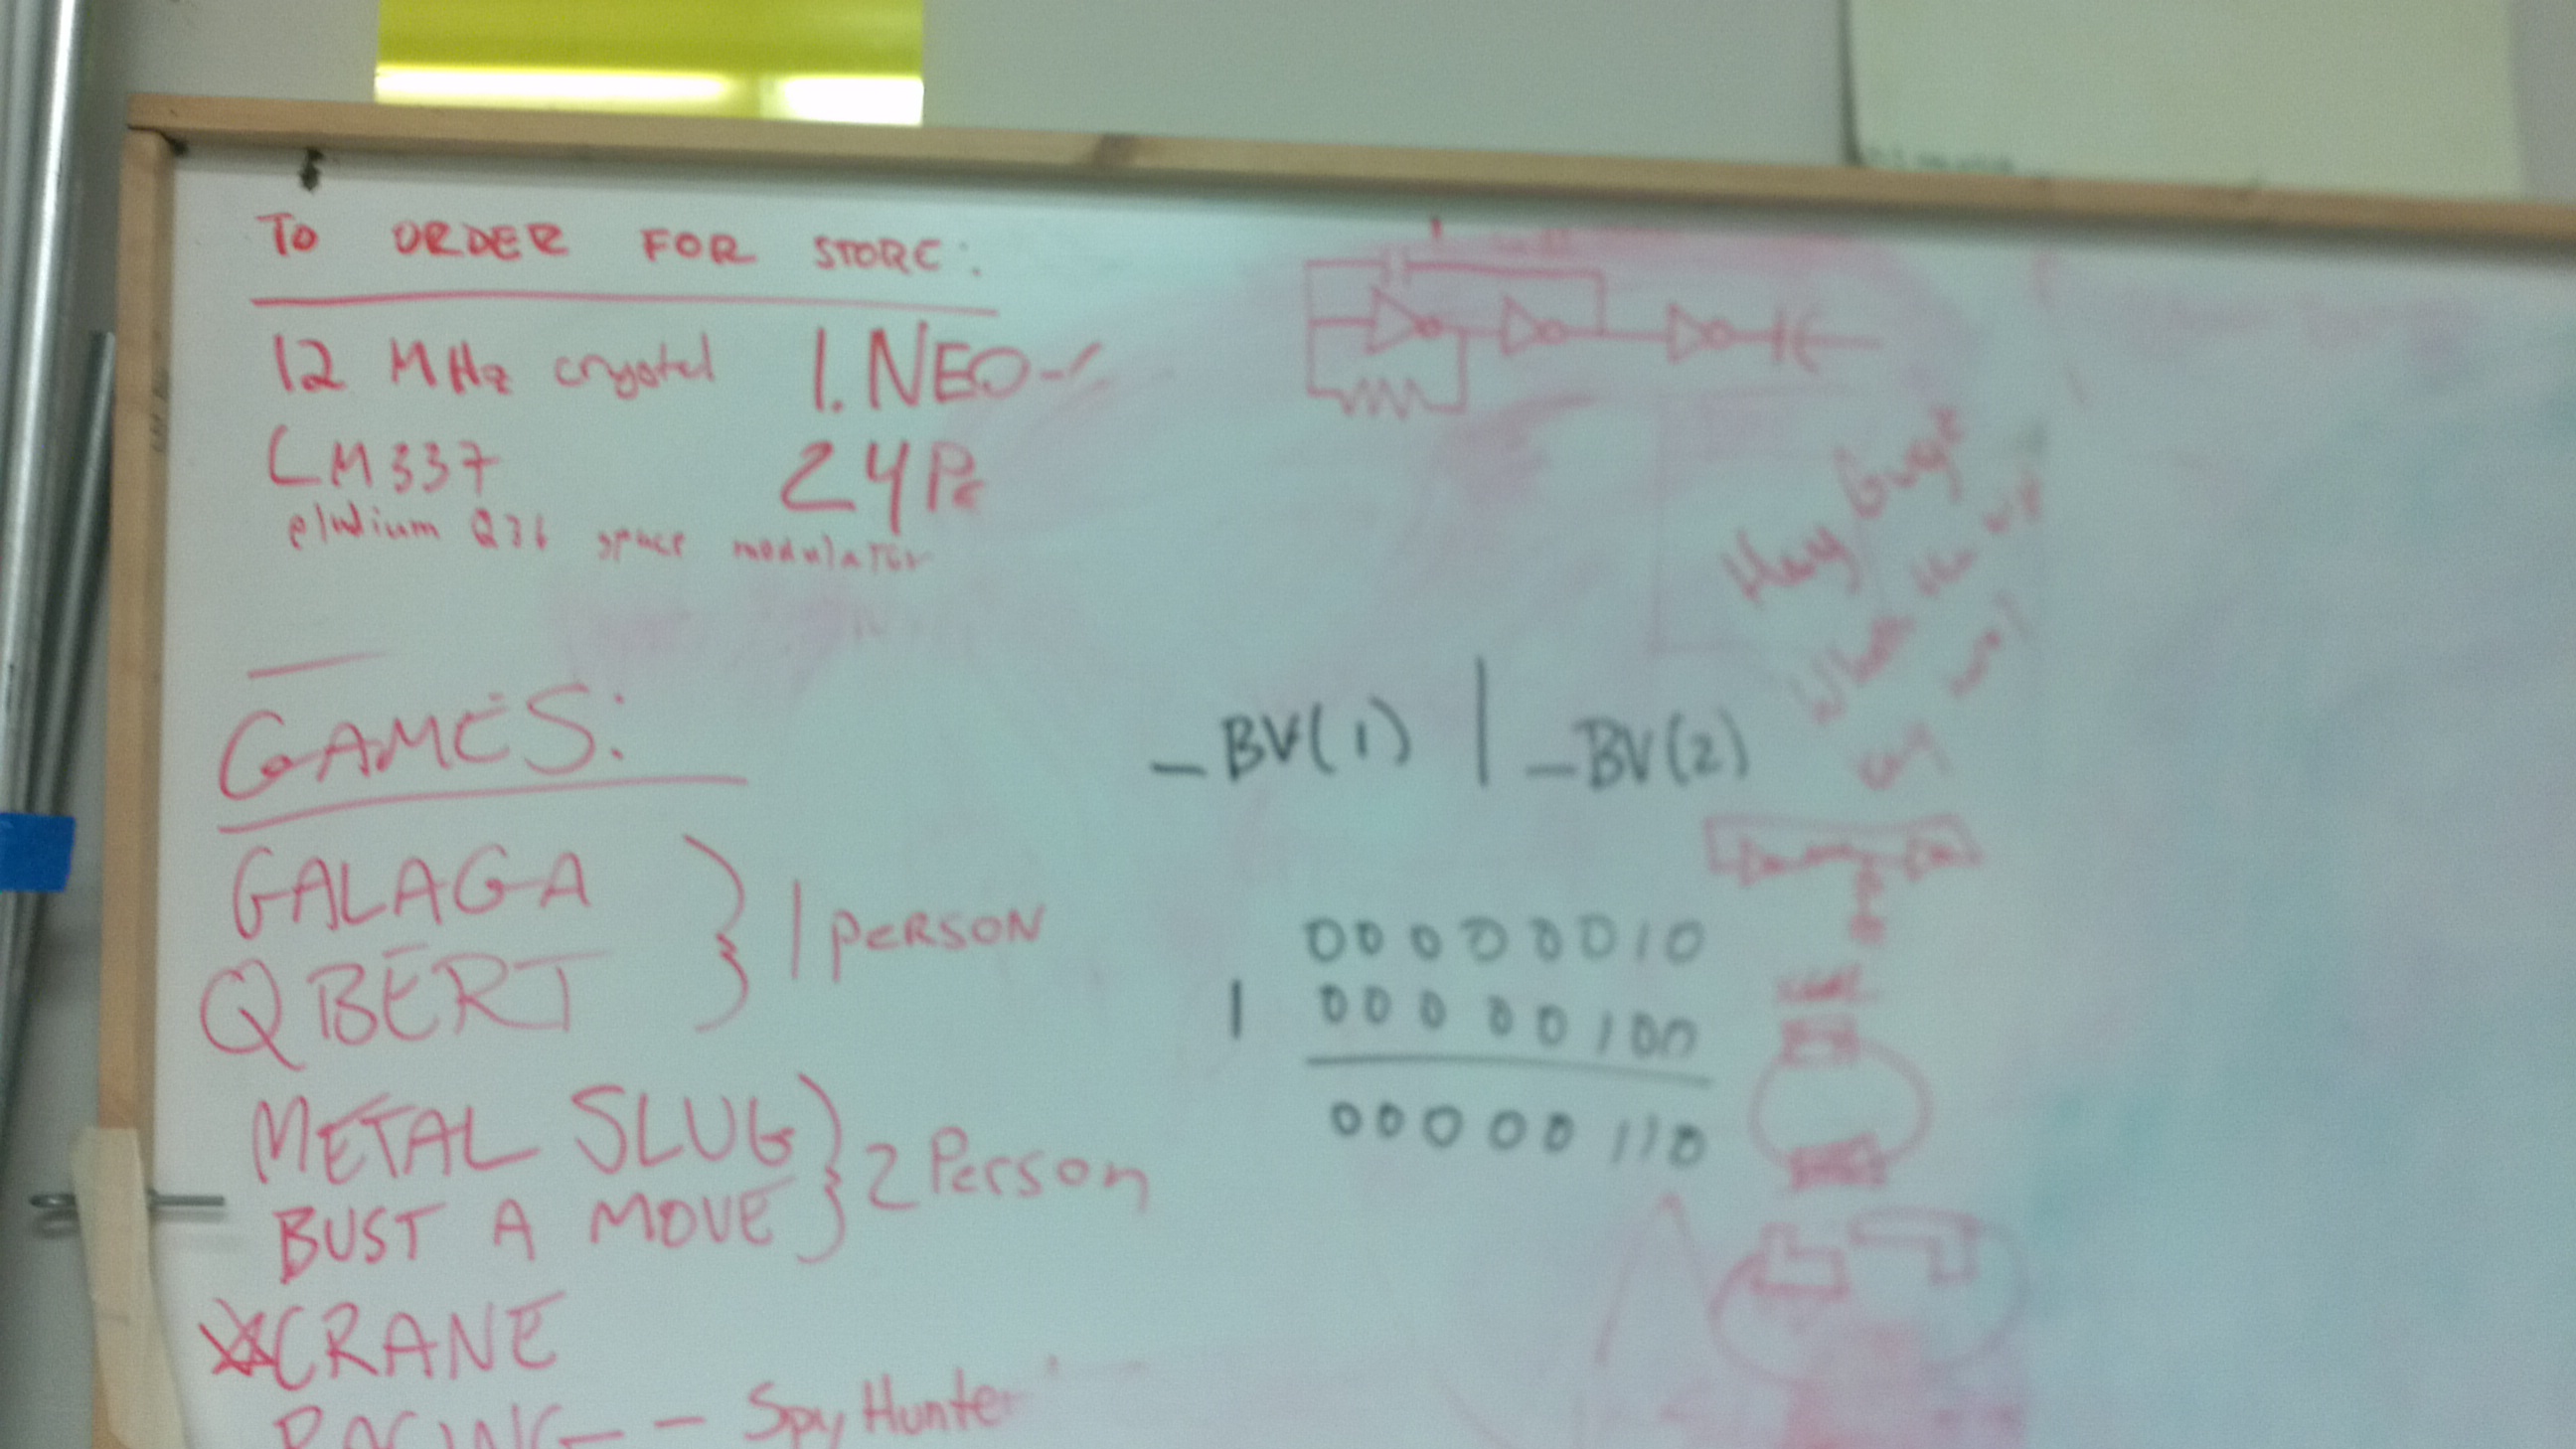 TO ORDER FOR STORE:
12 MHz crystal
LM337
pludium Q36 space modulator
1. NEO-
2 4P
GAMES:
GALAGA
QBERT
1 PERSON
METAL SLUG
BUST A MOVE
2 Person
CRANE
RACING - - Spy Hunter
_BV(1) | _BV(2)
00000010
| 00000100
00000110
Hey Guys